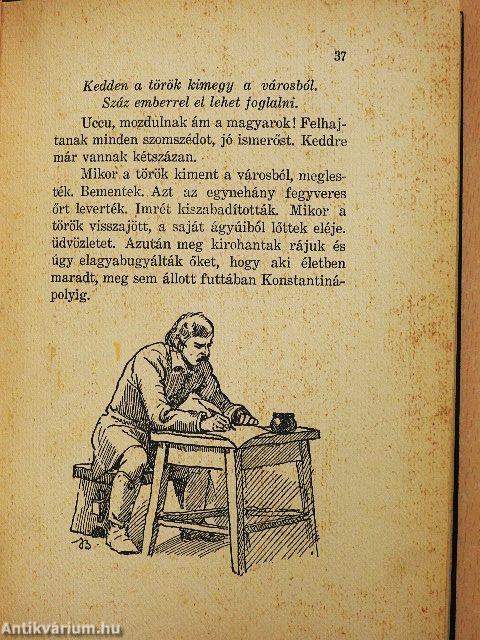 37
Kedden a török kimegy a városból.
Száz emberrel el lehet foglalni.
Uccu, mozdulnak ám a magyarok! Felhaj-
tanak minden szomszédot, jó ismerőst. Keddre
már vannak kétszázan.
Mikor a török kiment a városból, megles-
ték. Bementek. Azt az egynehány fegyveres
őrt leverték. Imrét kiszabadították. Mikor a
török visszajött, a saját ágyúiból lőttek eléje.
üdvözletet. Azután meg kirohantak rájuk és
úgy elagyabugyálták őket, hogy aki életben
maradt, meg sem állott futtában Konstantiná-
polyig.
Antikvárium.hu